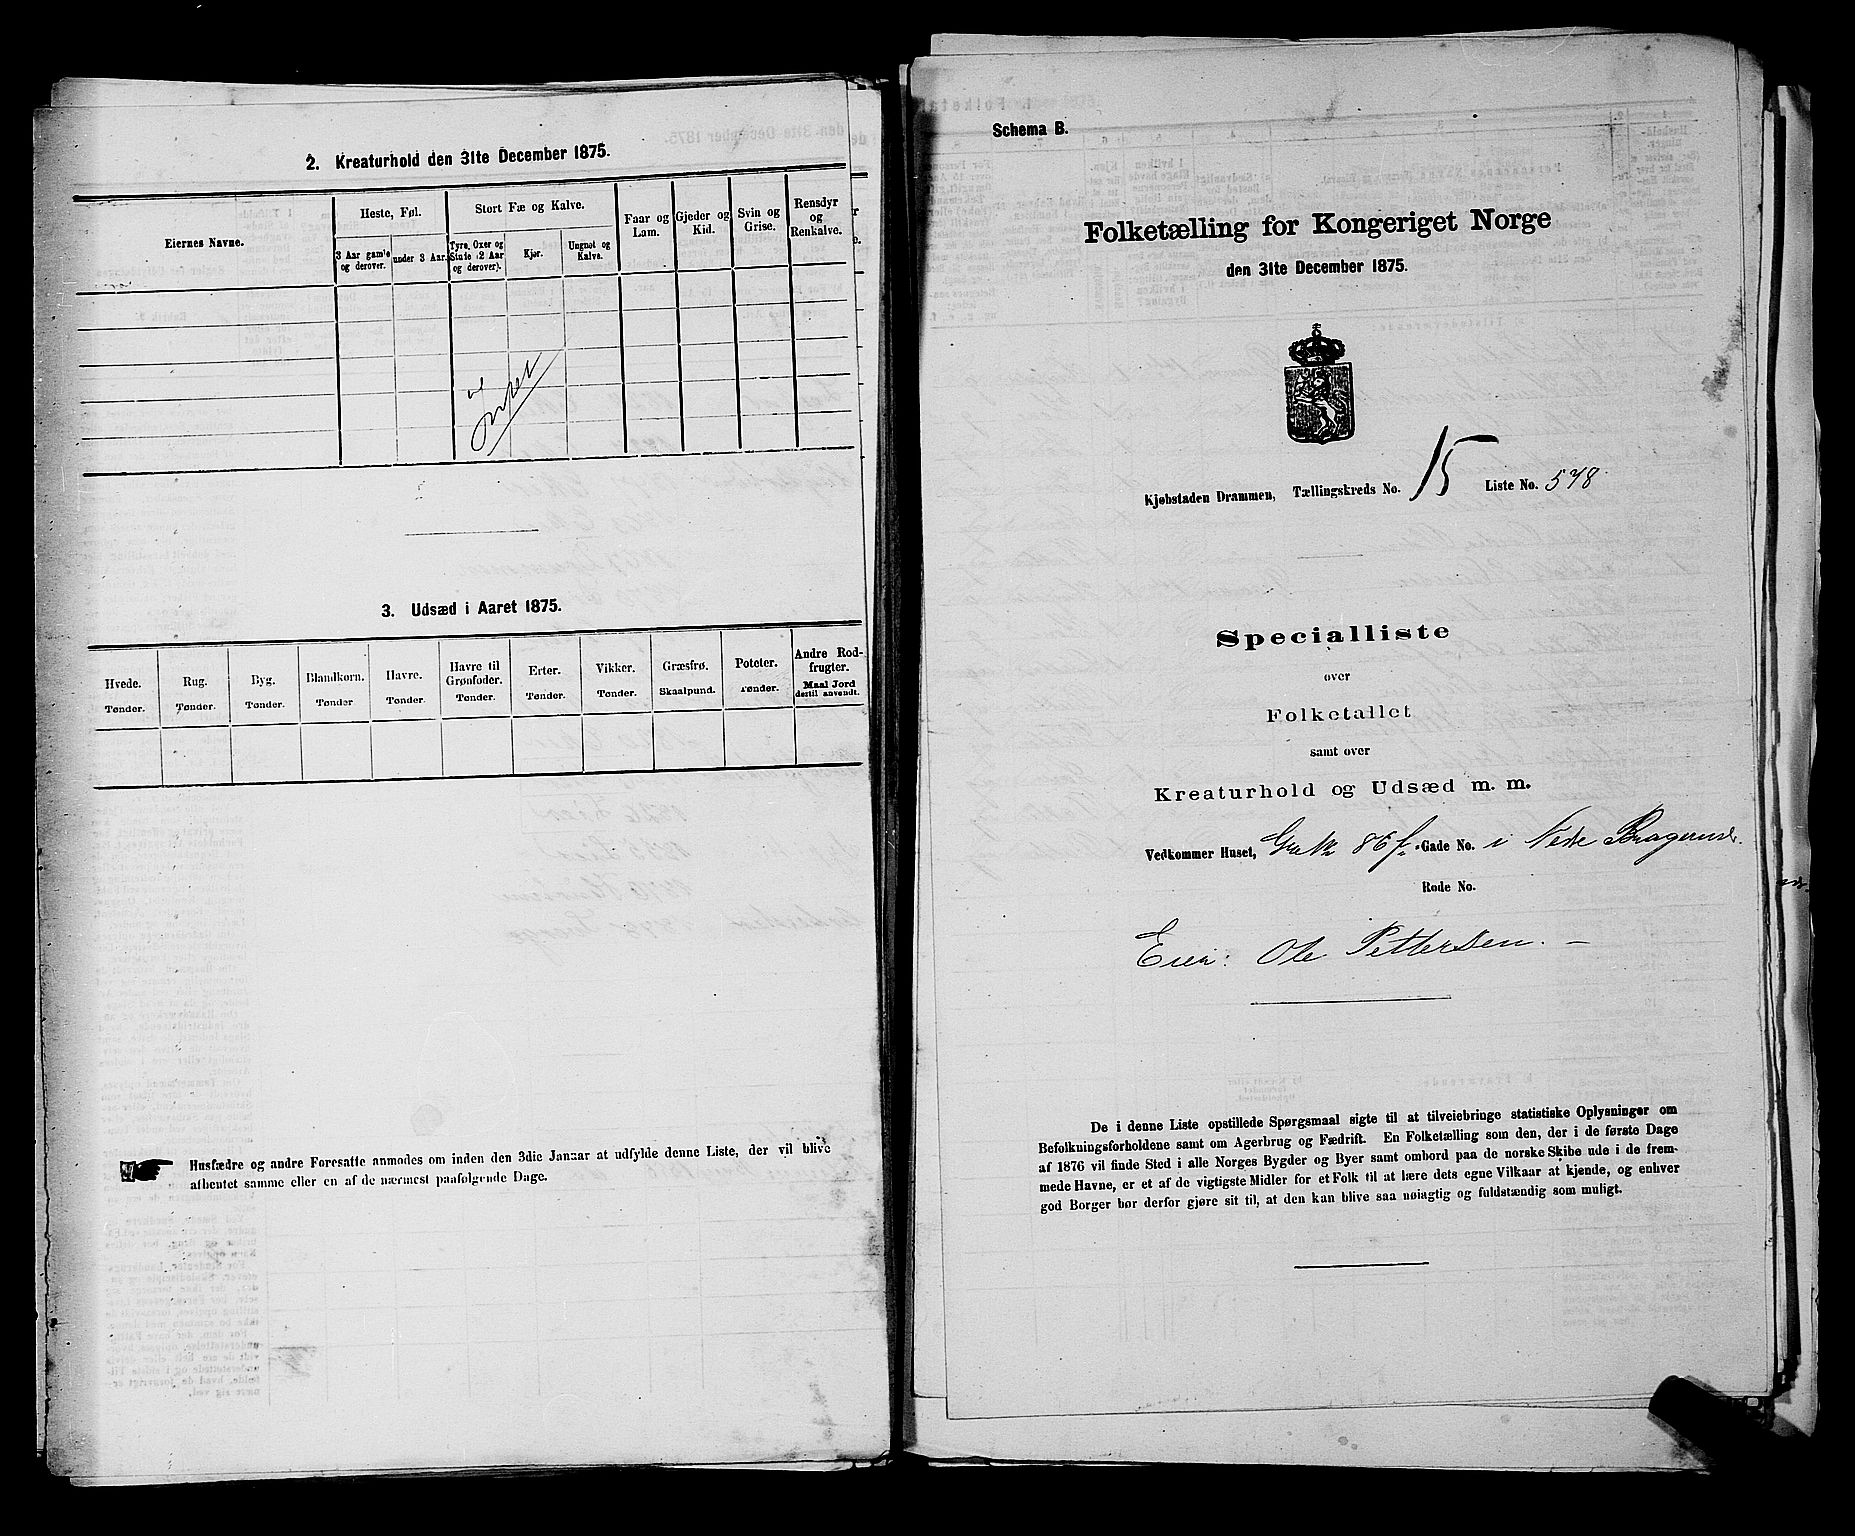 2. Kreaturhold den 31te December 1875.
Eiernes Navne.
Heste, Føl.
Stort Fæ og Kalve.
Faar og Lam.
Gjeder og Kid.
Svin og Grise.
Rensdyr og Renkalve.
3 Aar gamle og derover.
under 3 Aar.
Tyre, Oxer og Stude (2 Aar og derover).
Kjør.
Ungnøt og Kalve.
3. Udsæd i Aaret 1875.
Hvede. Tønder.
Rug. Tønder.
Byg. Tønder.
Blandkorn. Tønder
Havre. Tønder.
Havre til Grønfoder. Tønder.
Erter. Tønder.
Vikker. Tønder.
Græsfrø. Skaalpund.
Poteter. Tønder.
Andre Rodfrugter. Maal Jord dertil anvendt.
Husfædre og andre Foresatte anmodes om inden den 3die Januar at udfylde denne Liste, der vil blive
afhentet samme eller en af de nærmest paafølgende Dage.
Schema B.
Folketælling for Kongeriget Norge
den 31te December 1875.
Kjøbstaden Drammen, Tællingskreds No. 15 Liste No. 578
Specialliste
over
Folketallet
samt over
Kreaturhold og Udsæd m. m.
Vedkommer Huset, 86 f. Gade No. i Nedre Bragernes.
Rode No.
Eier: Ole Pettersen. –
De i denne Liste opstillede Spørgsmaal sigte til at tilveiebringe statistiske Oplysninger om
Befolkningsforholdene samt om Agerbrug og Fædrift. En Folketælling som den, der i de første Dage
af 1876 vil finde Sted i alle Norges Bygder og Byer samt ombord paa de norske Skibe ude i de frem-
mede Havne, er et af de vigtigste Midler for et Folk til at lære dets egne Vilkaar at kjende, og enhver
god Borger bør derfor gjøre sit til, at den kan blive saa nøiagtig og fuldstændig som muligt.